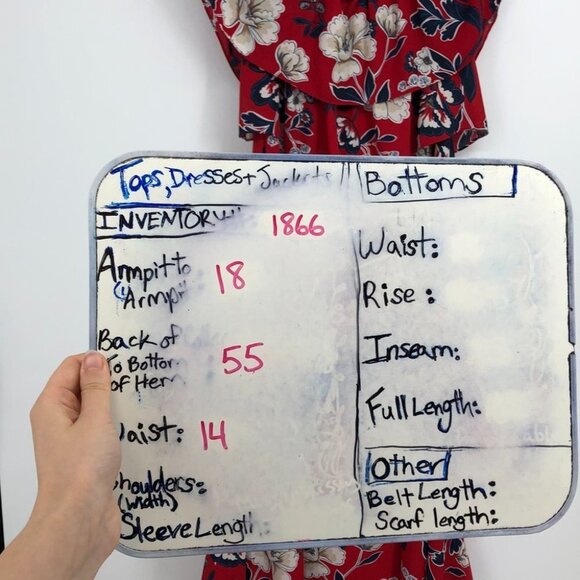 Tops, Dresses + Jackets
INVENTORY 1866
Armpit to 18
Armp
Back of
To Bottom 55
of Hem
Waist: 14
Shoulders:
(width)
Sleeve Length:
Bottoms
Waist:
Rise:
Inseam:
Full Length:
Other
Belt Length:
Scarf length: